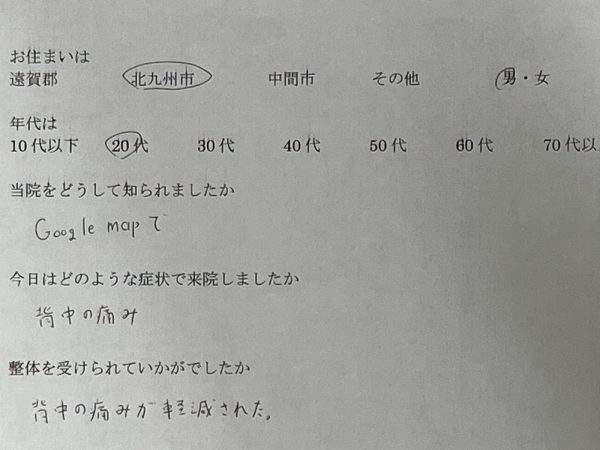 お住まいは
遠賀郡 北九州市 中間市 その他 男・女
年代は
10代以下 20代 30代 40代 50代 60代 70代以
当院をどうして知られましたか
Google mapで
今日はどのような症状で来院しましたか
背中の痛み
整体を受けられていかがでしたか
背中の痛みが軽減された。